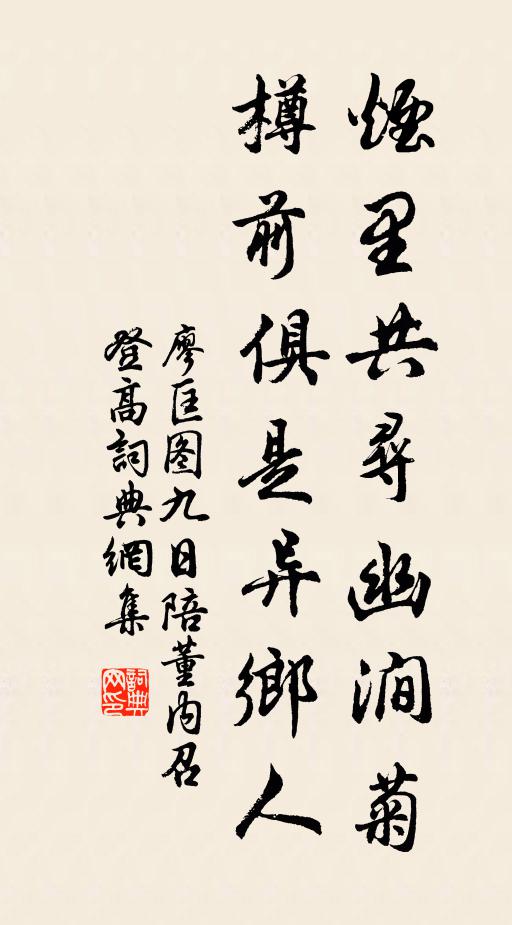 煙里共尋幽澗菊
樽前俱是异鄉人
廖匡图九日陪董内召
登高詞典網集
詞典网印